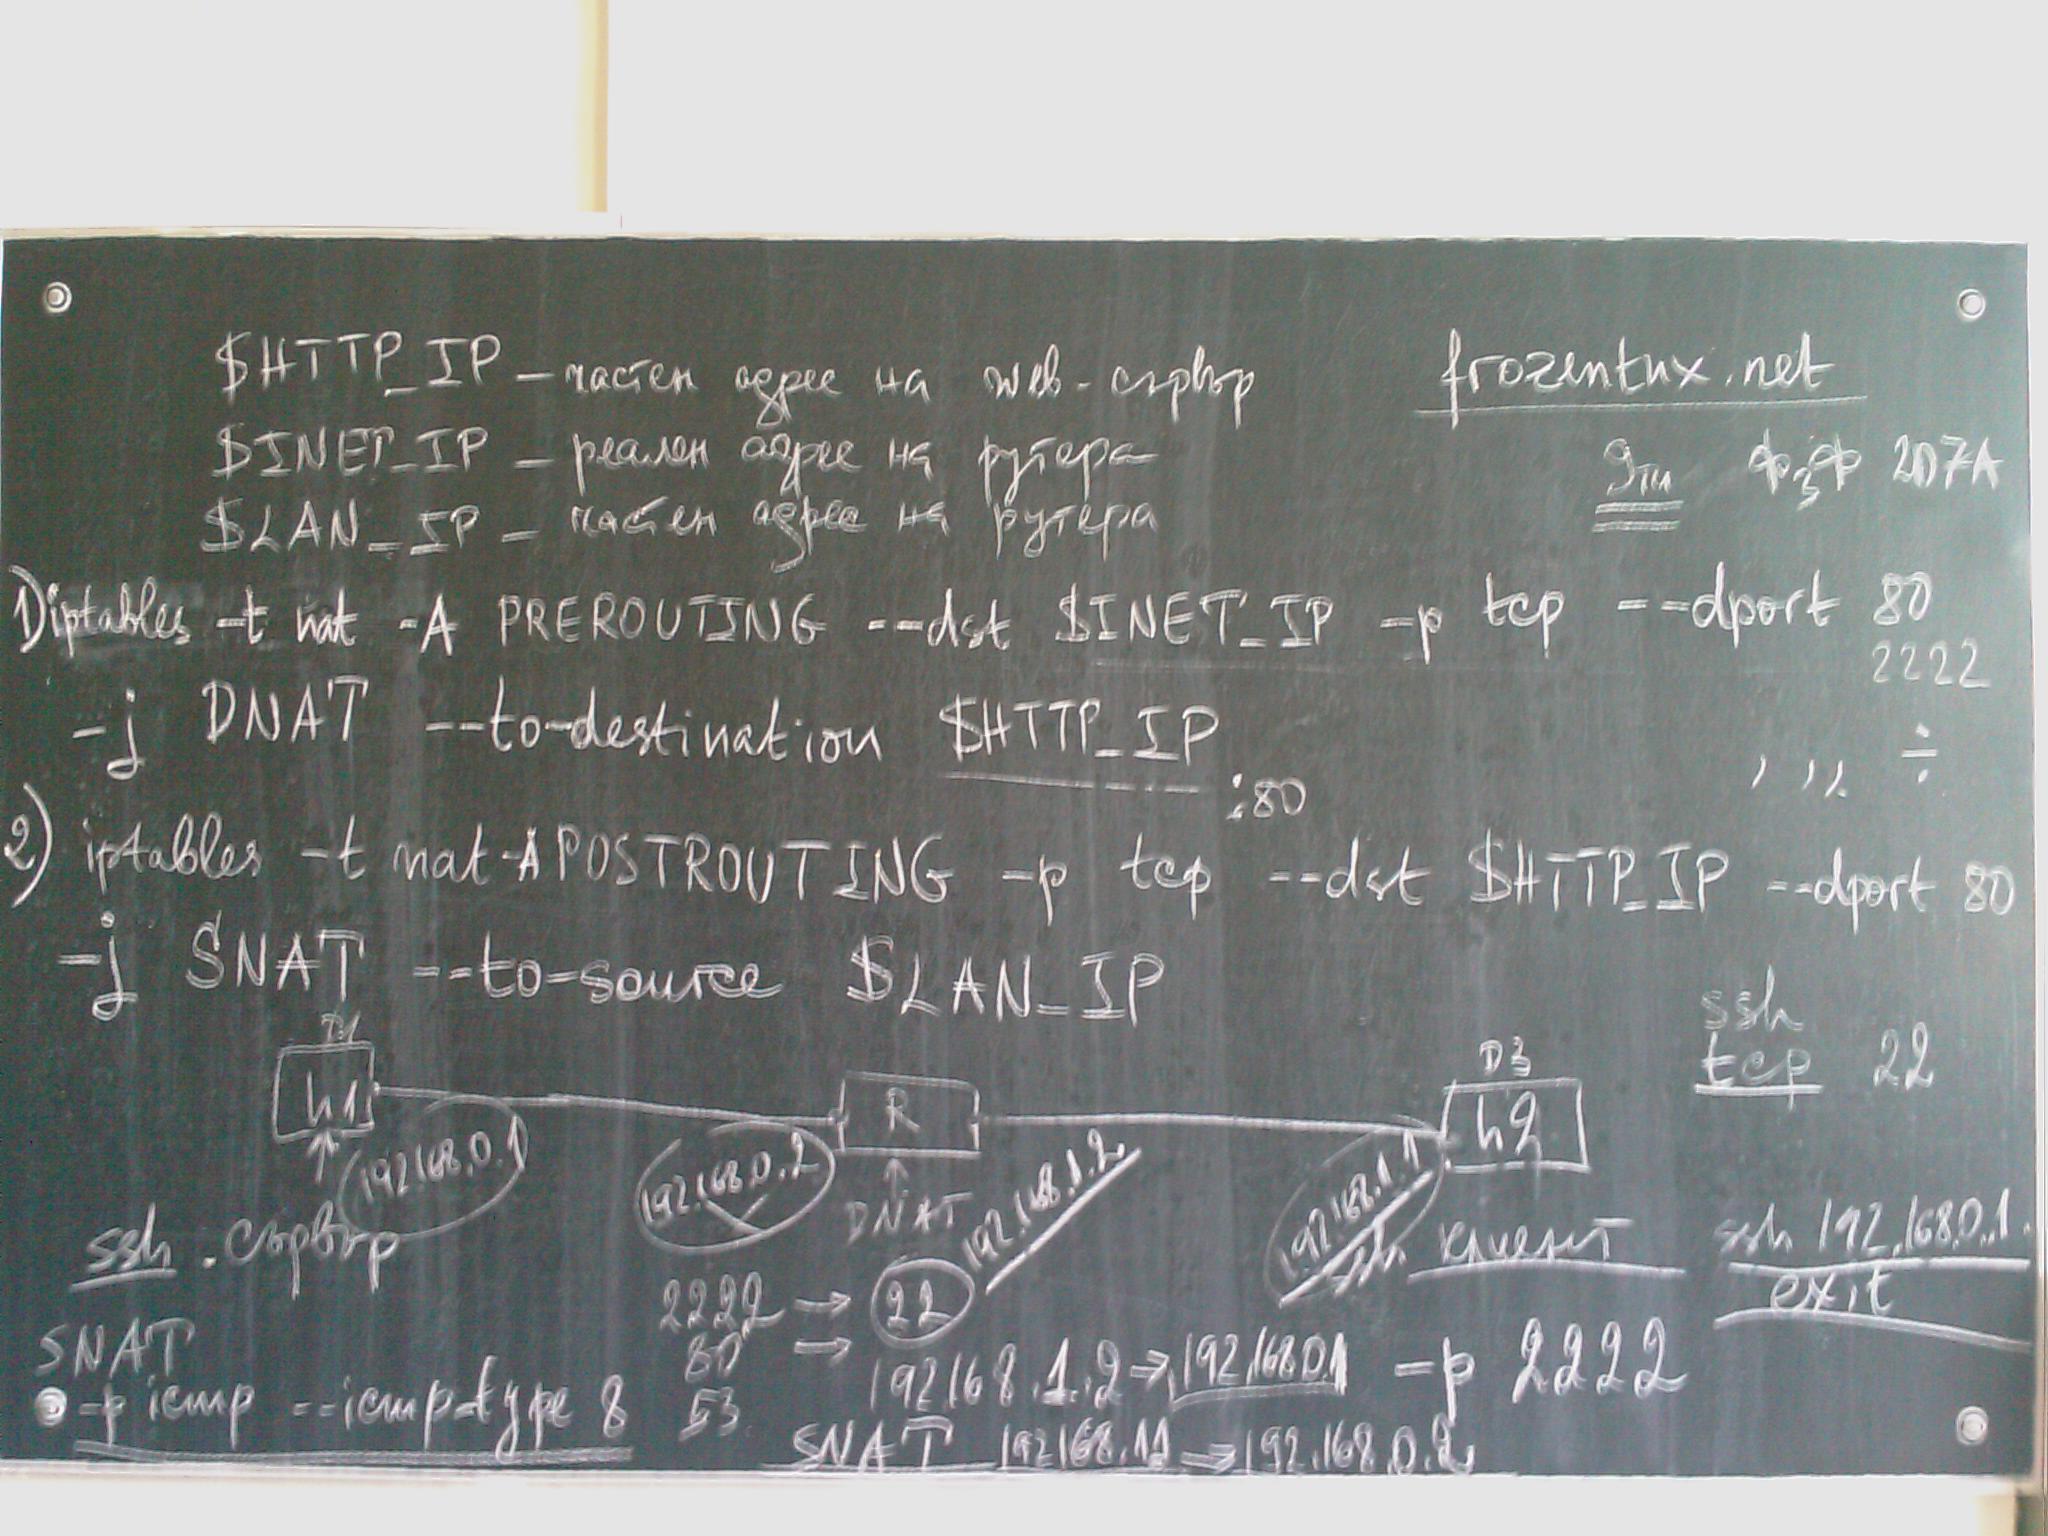 $HTTP_IP – частен адрес на web-сървър
frozentux.net
$INET_IP – реален адрес на рутера
9ти ФзФ 207А
$LAN_IP – частен адрес на рутера
1) iptables -t nat -A PREROUTING --dst $INET_IP -p tcp --dport 80
2222
-j DNAT --to-destination $HTTP_IP
:80
2) iptables -t nat -A POSTROUTING -p tcp --dst $HTTP_IP --dport 80
-j SNAT --to-source $LAN_IP
ssh
tcp 22
h1
R
D3
h2
192.168.0.1
192.168.0.2
DNAT
192.168.1.2
192.168.1.1
ssh клиент
ssh 192.168.0.1
exit
ssh. сървър
2222 → 22
80 →
53
192168.1.2 → 192.168.0.1 -p 2222
SNAT
-p icmp --icmp-type 8
SNAT 192168.1.1 → 192.168.0.2